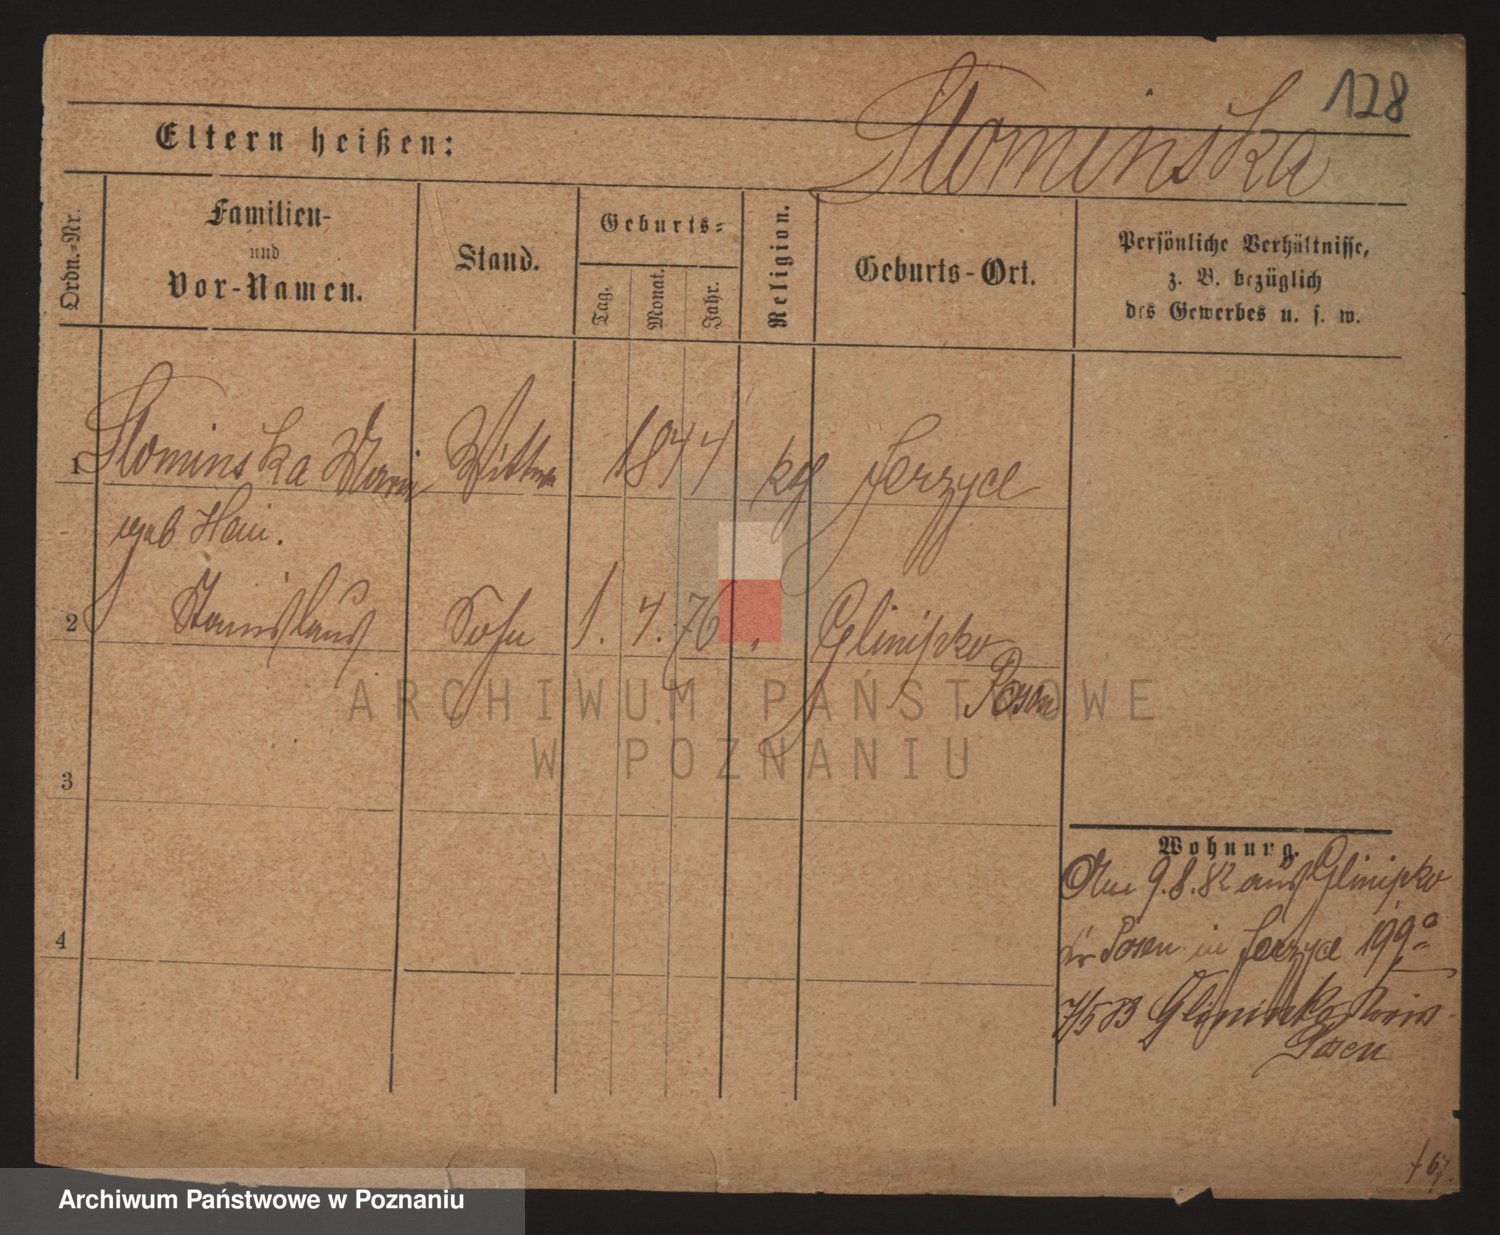 128
Slominska
Eltern heißen:
Ordn.-Nr.
Familien-
und
Vor-Namen.
Stand.
Geburts-
Tag.
Monat.
Jahr.
Religion.
Geburts-Ort.
Persönliche Verhältnisse,
z. B. bezüglich
des Gewerbes u. s. w.
1 Slominska Maria Wittwe 1844 kg Jerzyce
geb
2 Stanislaus Sohn 1. 4. 76 Glinisko
Posen
3
4
Wohnung.
Am 9.8.82 aus
Posen in Jerzyce 199a
7/5 83
Posen
ARCHIWUM PAŃSTWOWE
W POZNANIU
Archiwum Państwowe w Poznaniu